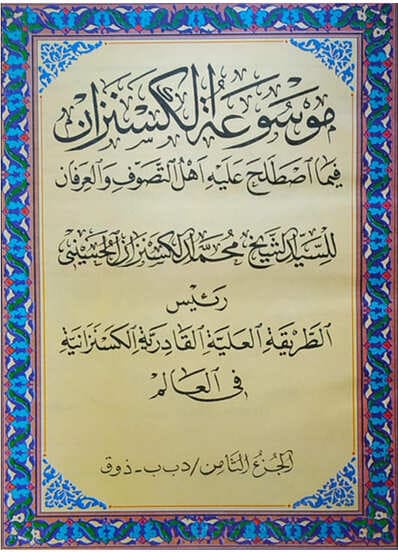 موسوعة الكسنزان
فيما اصطلح عليه أهل التصوف والعرفان
للسيد الشيخ محمد الكسنزان الحسيني
رئيس
الطريقة العلية القادرية الكسنزانية
في العالم
الجزء الثامن / د ب ب - ذ و ق